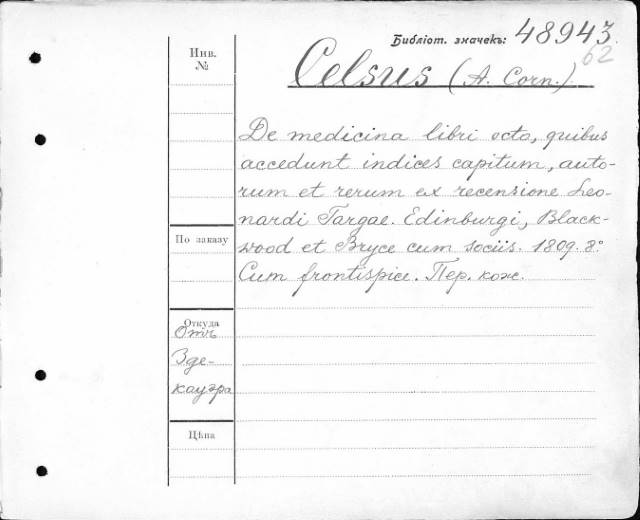 Библіот. значекъ: 48943.
62
Инв.
№
Celsus (A. Corn.)
De medicina libri octo, quibus
accedunt indices capitum, auto-
rum et rerum ex recensione Leo-
nardi Targae. Edinburgi, Black-
wood et Bryce cum sociis. 1809. 8°
Cum frontispice. Пер. кож.
По заказу
Откуда
Отъ
Зде-
кауэра
Цѣна